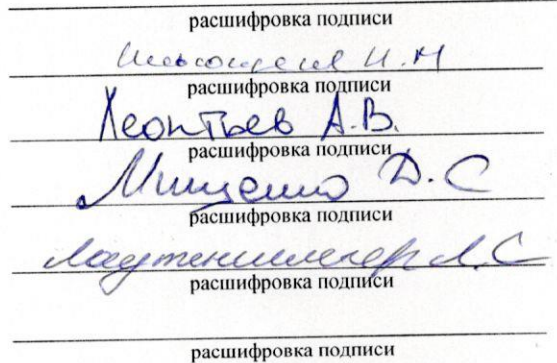 расшифровка подписи
И. М
расшифровка подписи
Леонтьев А.В.
расшифровка подписи
Мищенко Д.С
расшифровка подписи
Лаутеншлегер Л.С
расшифровка подписи
расшифровка подписи